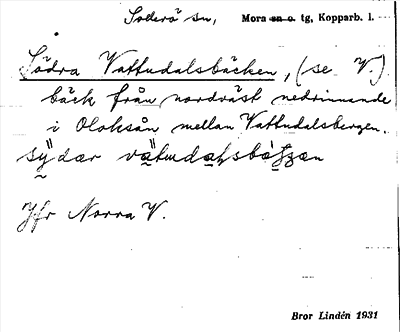 Solerö sn, Mora sn o. tg, Kopparb. l.
Södra Vattudalsbäcken, (se V.)
bäck från nordväst nedrinnande
i Oloksån mellan Vattudalsbergen.
Jfr Norra V.
Bror Lindén 1931